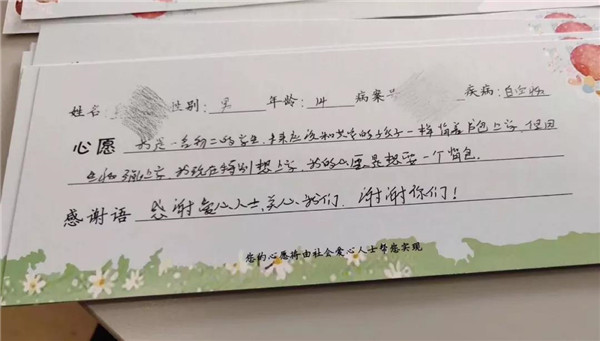 姓名: 性别: 男 年龄: 14 病案号 疾病: 白血病
心愿 我是一名初二的学生,本来应该和其他的孩子一样背着书包上学,但因
生病 上学,我现在特别想上学,我的心愿是想要一个背包。
感谢语 感谢爱心人士关心我们,谢谢你们!
您的心愿将由社会爱心人士帮您实现